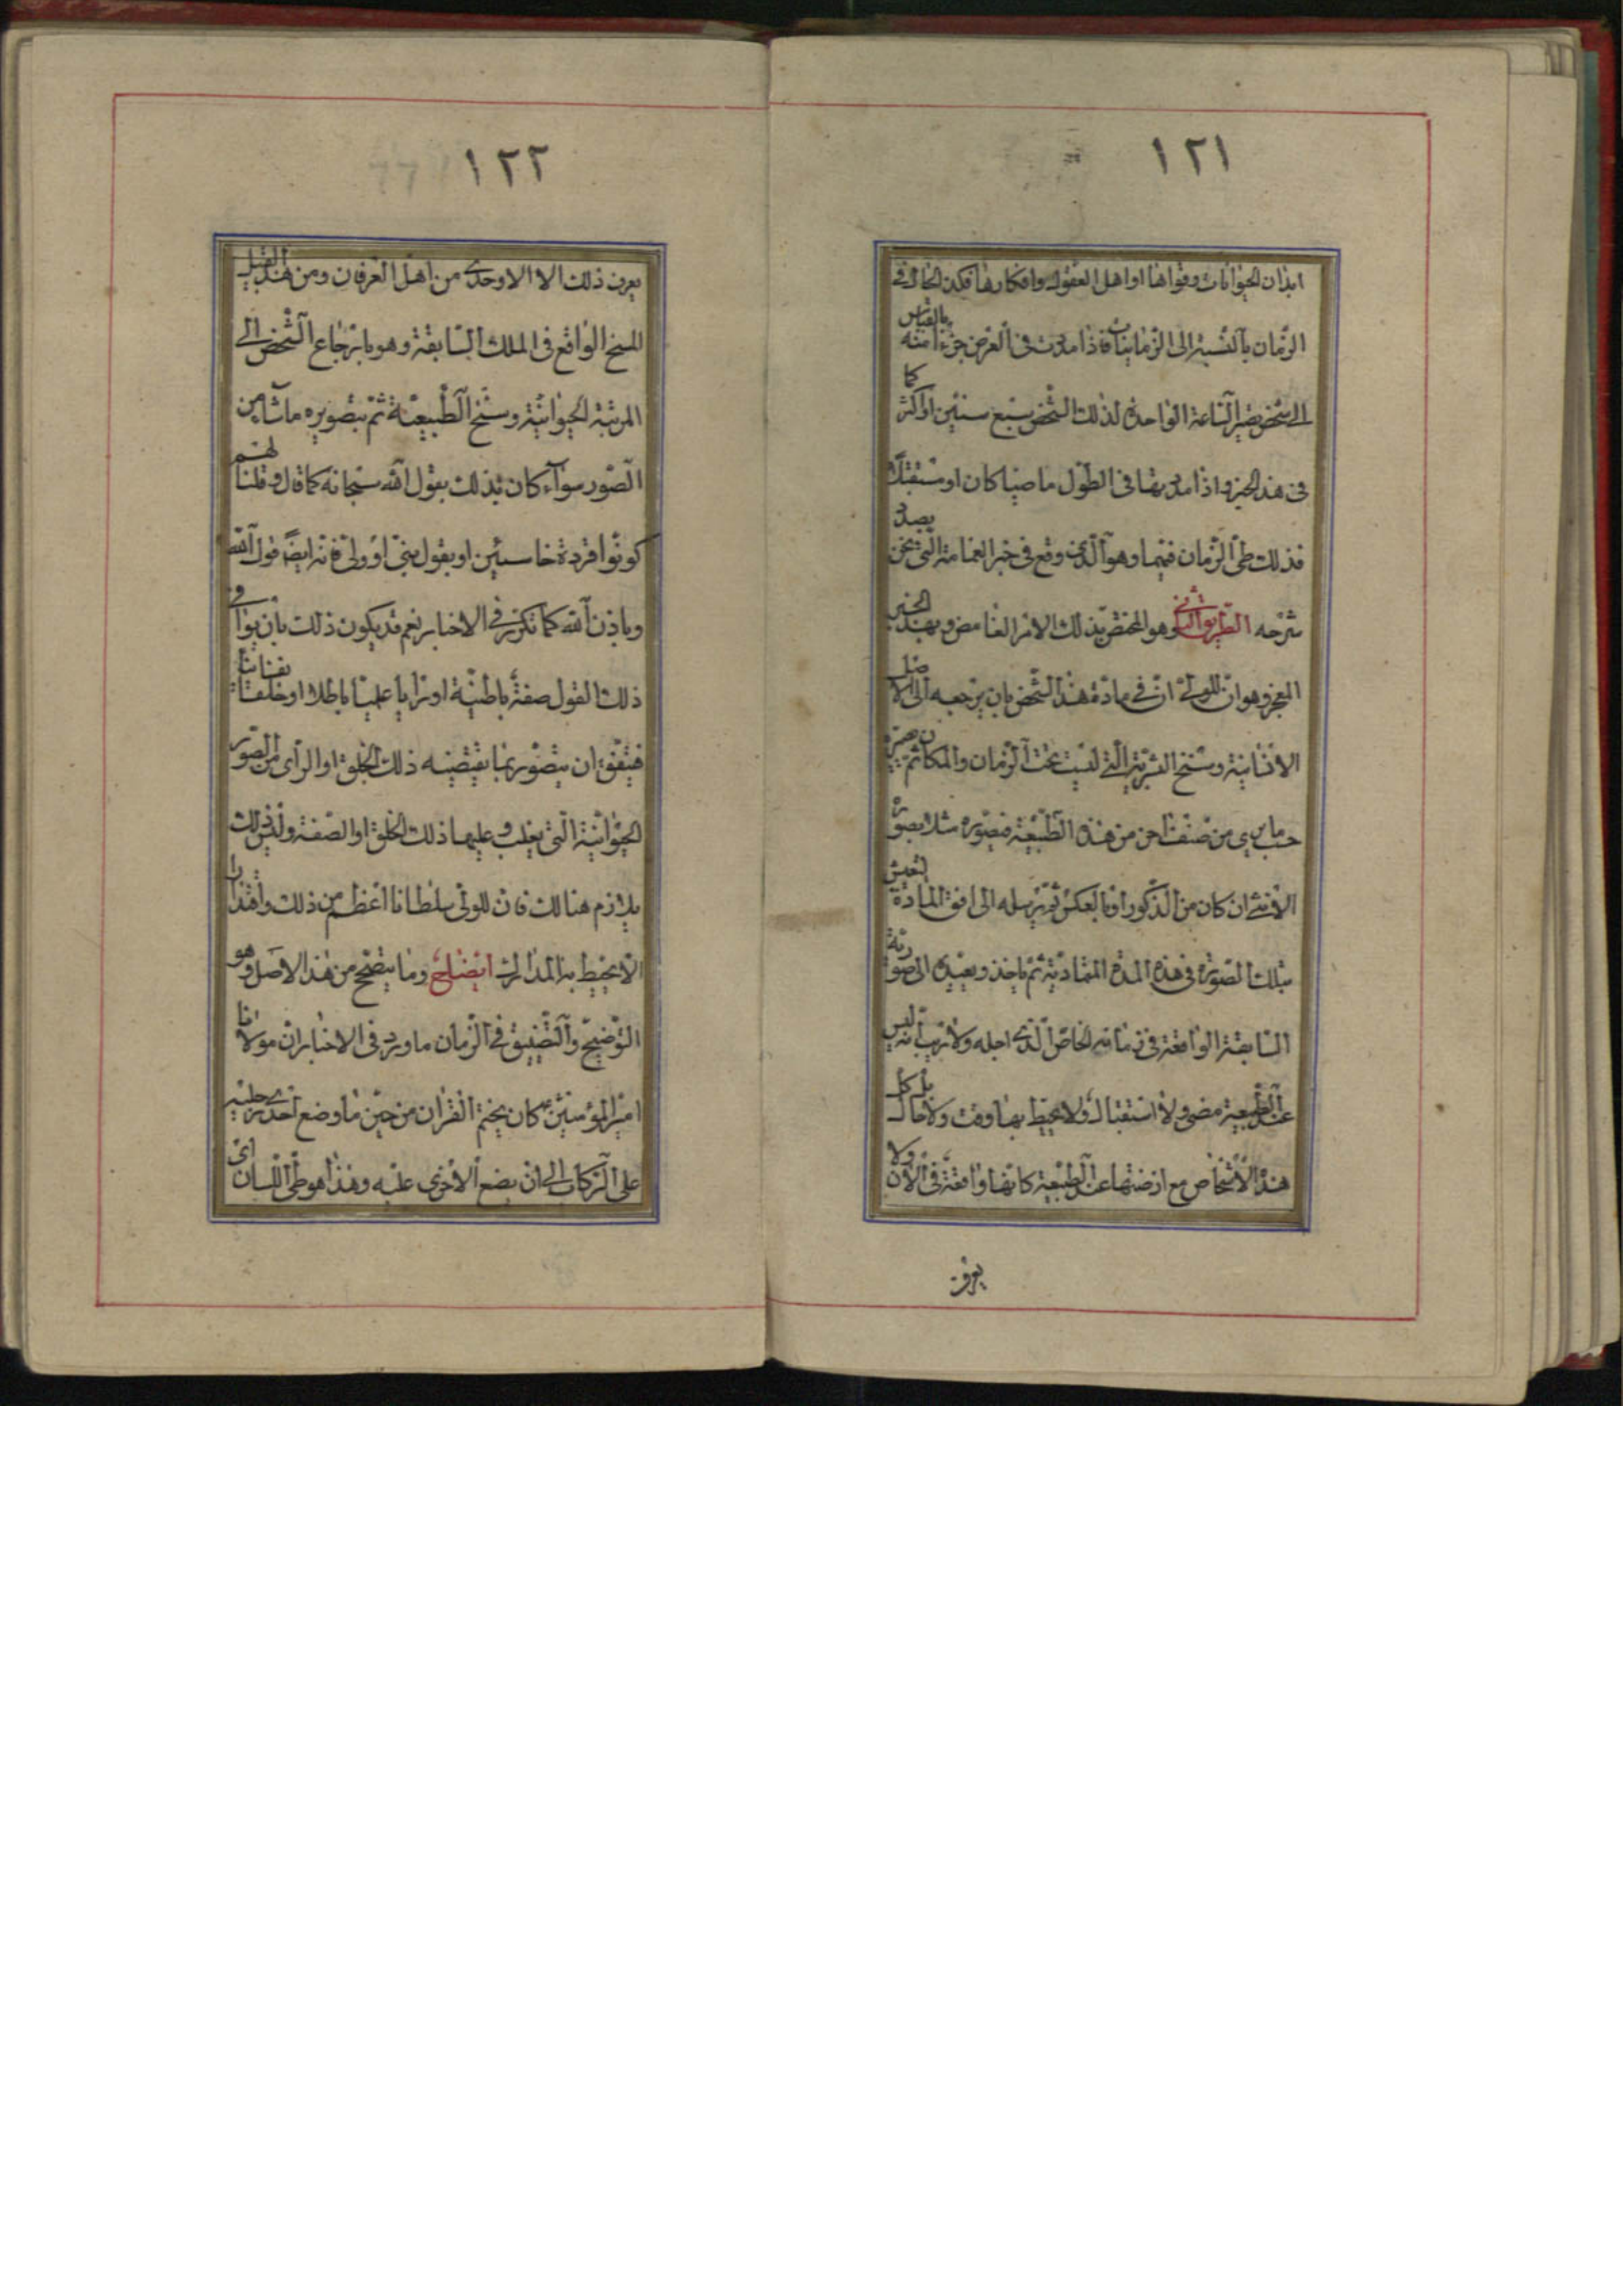 ١٢١
ابدان الحيوانات وقواها او اهل العقول وافكارها فكذا الحال في
الزمان بالنسبة الى الزمانيات فاذا مدت في العرض جزءا منه بالقياس
الى شخص يصير الساعة الواحدة لذلك الشخص سبع سنين او اكثر كما
في هذا الخبر واذا مد بها في الطول ماضيا كان او مستقبلا
فذلك طي الزمان فيهما وهو الذي وقع في خبر الغمامة التي نحن بصدد
شرحه الطريق الثاني وهو المختص بذلك الامر الغامض وبهذا الخبر
المعجز وهو ان للولي ان في مادة هذا الشخص بان يرجعه الى الاصل
الانسانية وسنخ البشرية التي ليست تحت الزمان والمكان ثم يصيره
حسب ما يرى من صنف اخر من هذه الطبيعة فيصوره مثلا بصورة
الانثى ان كان من الذكور او بالعكس ثم يرسله الى افق المادة لتعيش
بتلك الصورة في هذه المدة المتمادية ثم ياخذ ويعيده الى صورته
السابقة الواقعة في زمانه الخاص الذي اجله ولا ريب انه ليس
عند الطبيعة مضي ولا استقبال ولا يحيط بها وقت ولا حال بل كل
هذه الاشخاص مع ازمنتها عند الطبيعة كانها واقعة في الان ولا
يعرف
١٢٢
يعرف ذلك الا الاوحدي من اهل العرفان ومن هذا القبيل
المسخ الواقع في الملك السابقة وهو بارجاع الشخص الى
المرتبة الحيوانية وسنخ الطبيعية ثم بتصويره ما شاء من
الصور سواء كان بذلك بقول الله سبحانه كما قال وقلنا لهم
كونوا قردة خاسئين او بقول نبي او ولي فانه ايضا قول الله
وباذن الله كما تكرر في الاخبار نعم قد يكون ذلك بان يوافي
ذلك القول صفة باطنية او رايا علميا باطلا او خلقا نفسانيا
فيتفق ان يتصور بما يقتضيه ذلك الخلق او الراى من الصور
الحيوانية التي يغلب عليها ذلك الخلق او الصفة وليس ذلك
بلازم هنالك فان للولي سلطانا اعظم من ذلك واقتدارا
لا يحيط به المدارك ايضاح وما يتضح من هذا الاصل وهو
التوضيح والتضييق في الزمان ما ورد في الاخبار ان مولانا
امير المؤمنين كان يختم القران من حين ما وضع احدى رجليه
على الركاب الى ان يضع الاخرى عليه وهذا هو طي اللسان اي